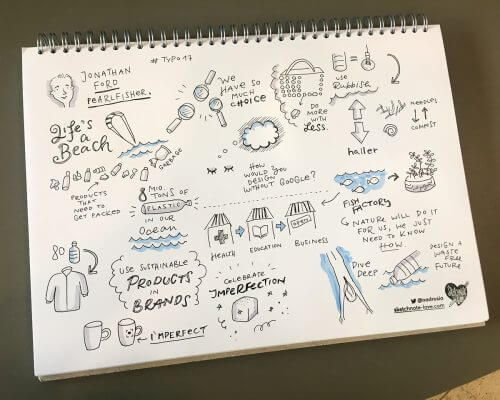 JONATHAN
FORD
PEARLFISHER.
# TYPO17
WE
HAVE SO
MUCH
CHOICE
DO
MORE
WITH
LESS.
USE
Rubbish
NEEDLES
COMPOST
hailer
Life's
a
Beach
GARBAGE
PRODUCTS
THAT
NEED TO
GET PACKED
8 MIO.
TONS OF
PLASTIC
IN OUR
Ocean
HOW
WOULD YOU
DESIGN
WITHOUT GOOGLE?
HEALTH
EDUCATION
OPEN
BUSINESS
FISH
FACTORY
NATURE WILL DO IT
FOR US, WE JUST
NEED TO KNOW
HOW.
80
USE SUSTAINABLE
PRODUCTS
IN
BRANDS
IMPERFECT
CELEBRATE
IMPERFECTION
DIVE
DEEP
DESIGN A
WASTE
FREE
FUTURE
@nadrosia
sketchnote-love.com